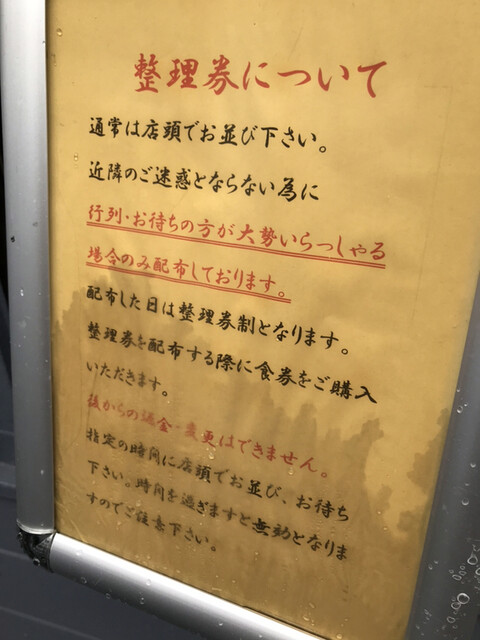 整理券について
通常は店頭でお並び下さい。
近隣のご迷惑とならない為に
行列・お待ちの方が大勢いらっしゃる
場合のみ配布しております。
配布した日は整理券制となります。
整理券を配布する際に食券をご購入
いただきます。
後からの返金・変更はできません。
指定の時間に店頭でお並び、お待ち
下さい。時間を過ぎますと無効となりま
すのでご注意下さい。